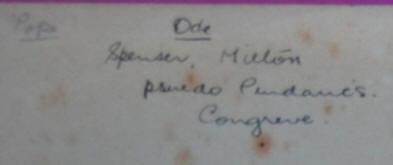 Pope Ode
Spenser, Milton
psuedo Pindarics.
Congreve.